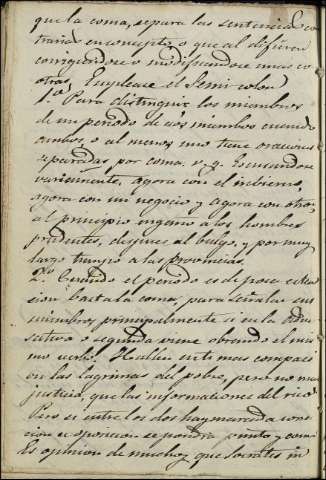 que la coma, separa las sentencias con
trarias en concepto, o que al difieren
corregiendose o modificandose unas con
otras. Emplease el Semi-colon
1.º Para distinguir los miembros
de un periodo de dos miembros cuando
ambos, o al menos uno tiene oraciones
separadas por coma. v. g. Escusandose
variamente, agora con el invierno,
agora con un negocio y agora con otro
al principio engaño a los hombres
prudentes, despues al bulgo, y por muy
largo tiempo a las provincias.
2.º Cuando el periodo es de poca exten
sion basta la coma, para señalar sus
miembros, principalmente si en la
o segunda viene obrando el mis
mo verbo. Hallen en ti mas compasi
on las lagrimas del pobre, pero no mas
justicia, que las informaciones del rico.
Pero si entre los dos hay marcada
oposicion se pondra punto y coma
Es opinion de muchos, que Socrates